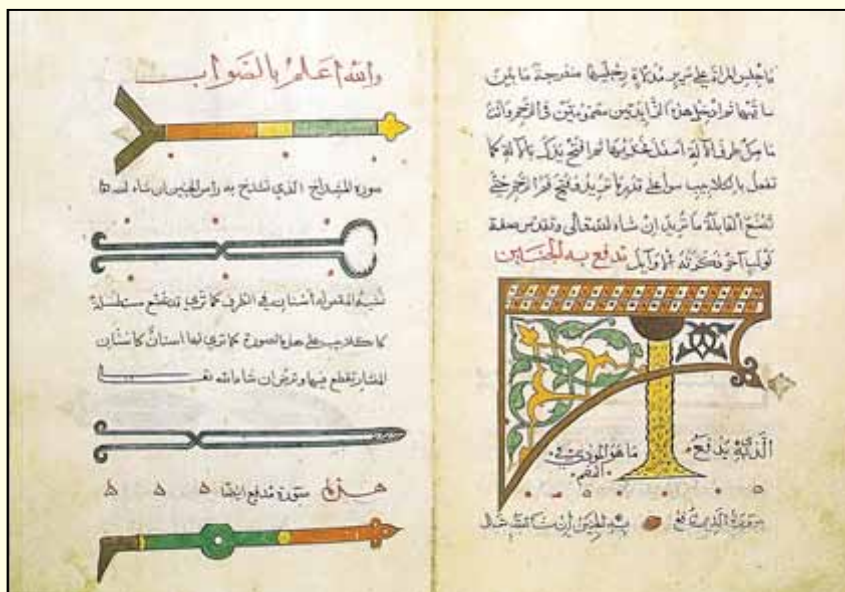 ما جلس المرأة على سرير مدلاة رجليها منفرجة ما بين
ساقيها ثم ادخل هذه الزائدتين مضمومتين في الرحم وانت
ماسك طرف الآلة اسفل فخذيها ثم افتح يدك بالآلة كما
تفعل بالكلاليب سوا على قدر ما تريد فتح فم الرحم حتى
تصنع القابلة ما تريد ان شاء الله تعالى
لولب آخر ذكرته الاوايل تدفع به الجنين
الذي يدفع
صورة مدفع به الجنين ان شا الله تعالى
والله اعلم بالصواب
صورة المشداخ الذي تشدخ به راس الجنين ان شاء الله
شبيه المقص له اسنان في الطرف كما ترى وقد يصنع مستطيلا
كالكلاليب على هذه الصورة كما ترى لها اسنان كاسنان
المنشار يقطع فيها وترض ان شاء الله
هذه صورة مدفع ايضا